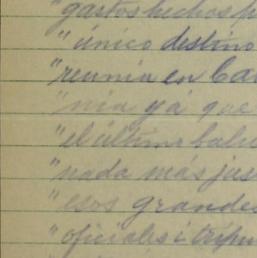 "gastos hechos p
"único destino
"reunía en Ca
"nia yá que
"el último balu
"nada más jus
"esos grandes
"oficiales i tripu